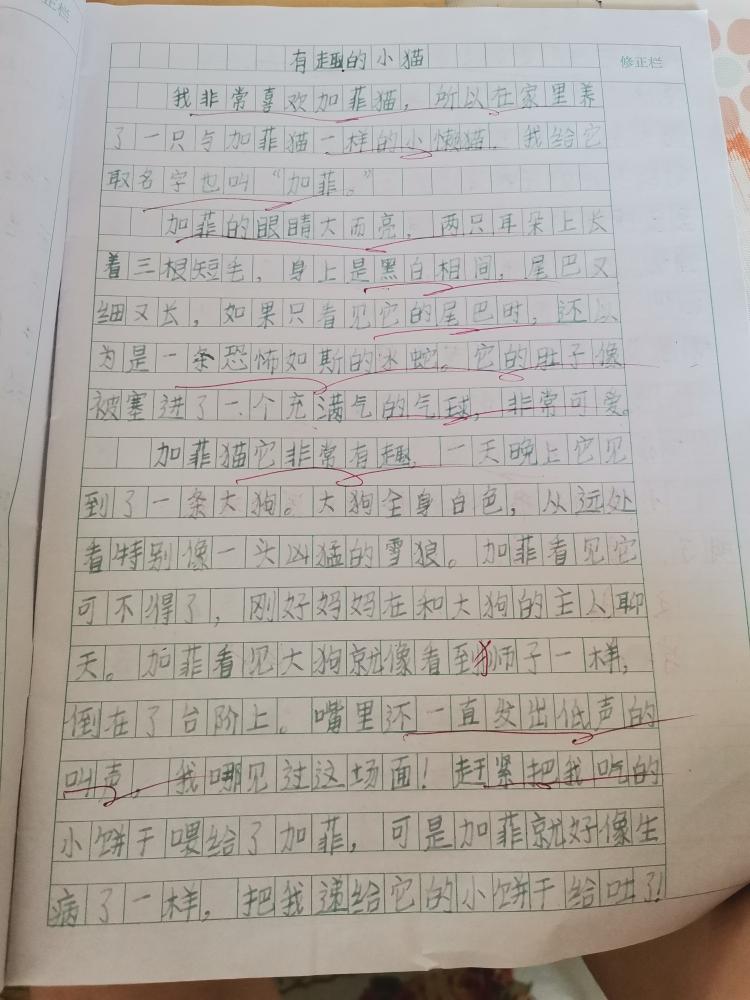 正栏
有趣的小猫
修正栏
我非常喜欢加菲猫，所以在家里养
了一只与加菲猫一样的小懒猫，我给它
取名字也叫“加菲。”
加菲的眼睛大而亮，两只耳朵上长
着三根短毛，身上是黑白相间，尾巴又
细又长，如果只看见它的尾巴时，还以
为是一条恐怖如斯的水蛇。它的肚子像
被塞进了一个充满气的气球，非常可爱。
加菲猫它非常有趣，一天晚上它见
到了一条大狗。大狗全身白色，从远处
看特别像一头凶猛的雪狼。加菲看见它
可不得了，刚好妈妈在和大狗的主人聊
天。加菲看见大狗就像看到狮子一样，
倒在了台阶上。嘴里还一直发出低声的
叫声。我哪见过这场面！赶紧把我吃的
小饼干喂给了加菲，可是加菲就好像生
病了一样，把我递给它的小饼干给吐了！